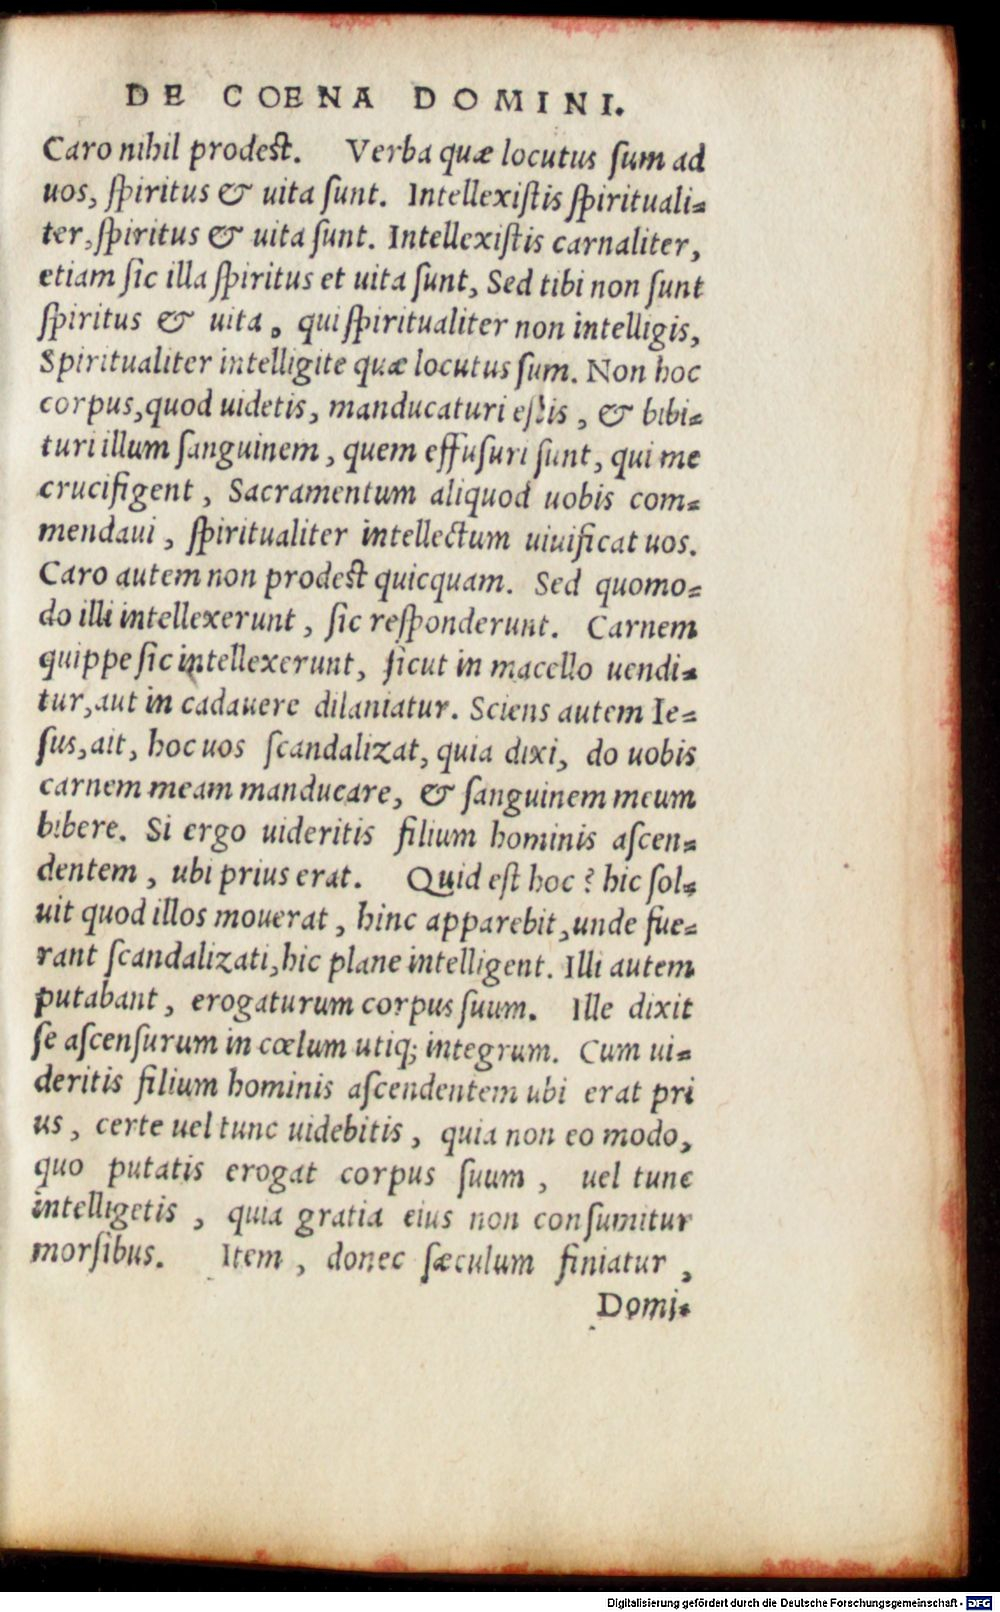 DE COENA DOMINI.
Caro nihil prodest. Verba quæ locutus sum ad
uos, spiritus & uita sunt. Intellexistis spirituali-
ter, spiritus & uita sunt. Intellexistis carnaliter,
etiam sic illa spiritus et uita sunt, Sed tibi non sunt
spiritus & uita, qui spiritualiter non intelligis,
Spiritualiter intelligite quæ locutus sum. Non hoc
corpus, quod uidetis, manducaturi estis, & bibi-
turi illum sanguinem, quem effusuri sunt, qui me
crucifigent, Sacramentum aliquod uobis com-
mendaui, spiritualiter intellectum uiuificat uos.
Caro autem non prodest quicquam. Sed quomo-
do illi intellexerunt, sic responderunt. Carnem
quippe sic intellexerunt, sicut in macello uendi-
tur, aut in cadauere dilaniatur. Sciens autem Ie-
sus, ait, hoc uos scandalizat, quia dixi, do uobis
carnem meam manducare, & sanguinem meum
bibere. Si ergo uideritis filium hominis ascen-
dentem, ubi prius erat. Quid est hoc? hic sol-
uit quod illos mouerat, hinc apparebit, unde fue-
rant scandalizati, hic plane intelligent. Illi autem
putabant, erogaturum corpus suum. Ille dixit
se ascensurum in cœlum utiq; integrum. Cum ui-
deritis filium hominis ascendentem ubi erat pri
us, certe uel tunc uidebitis, quia non eo modo,
quo putatis erogat corpus suum, uel tunc
intelligetis, quia gratia eius non consumitur
morsibus. Item, donec sæculum finiatur,
Domi-
Digitalisierung gefördert durch die Deutsche Forschungsgemeinschaft - DFG